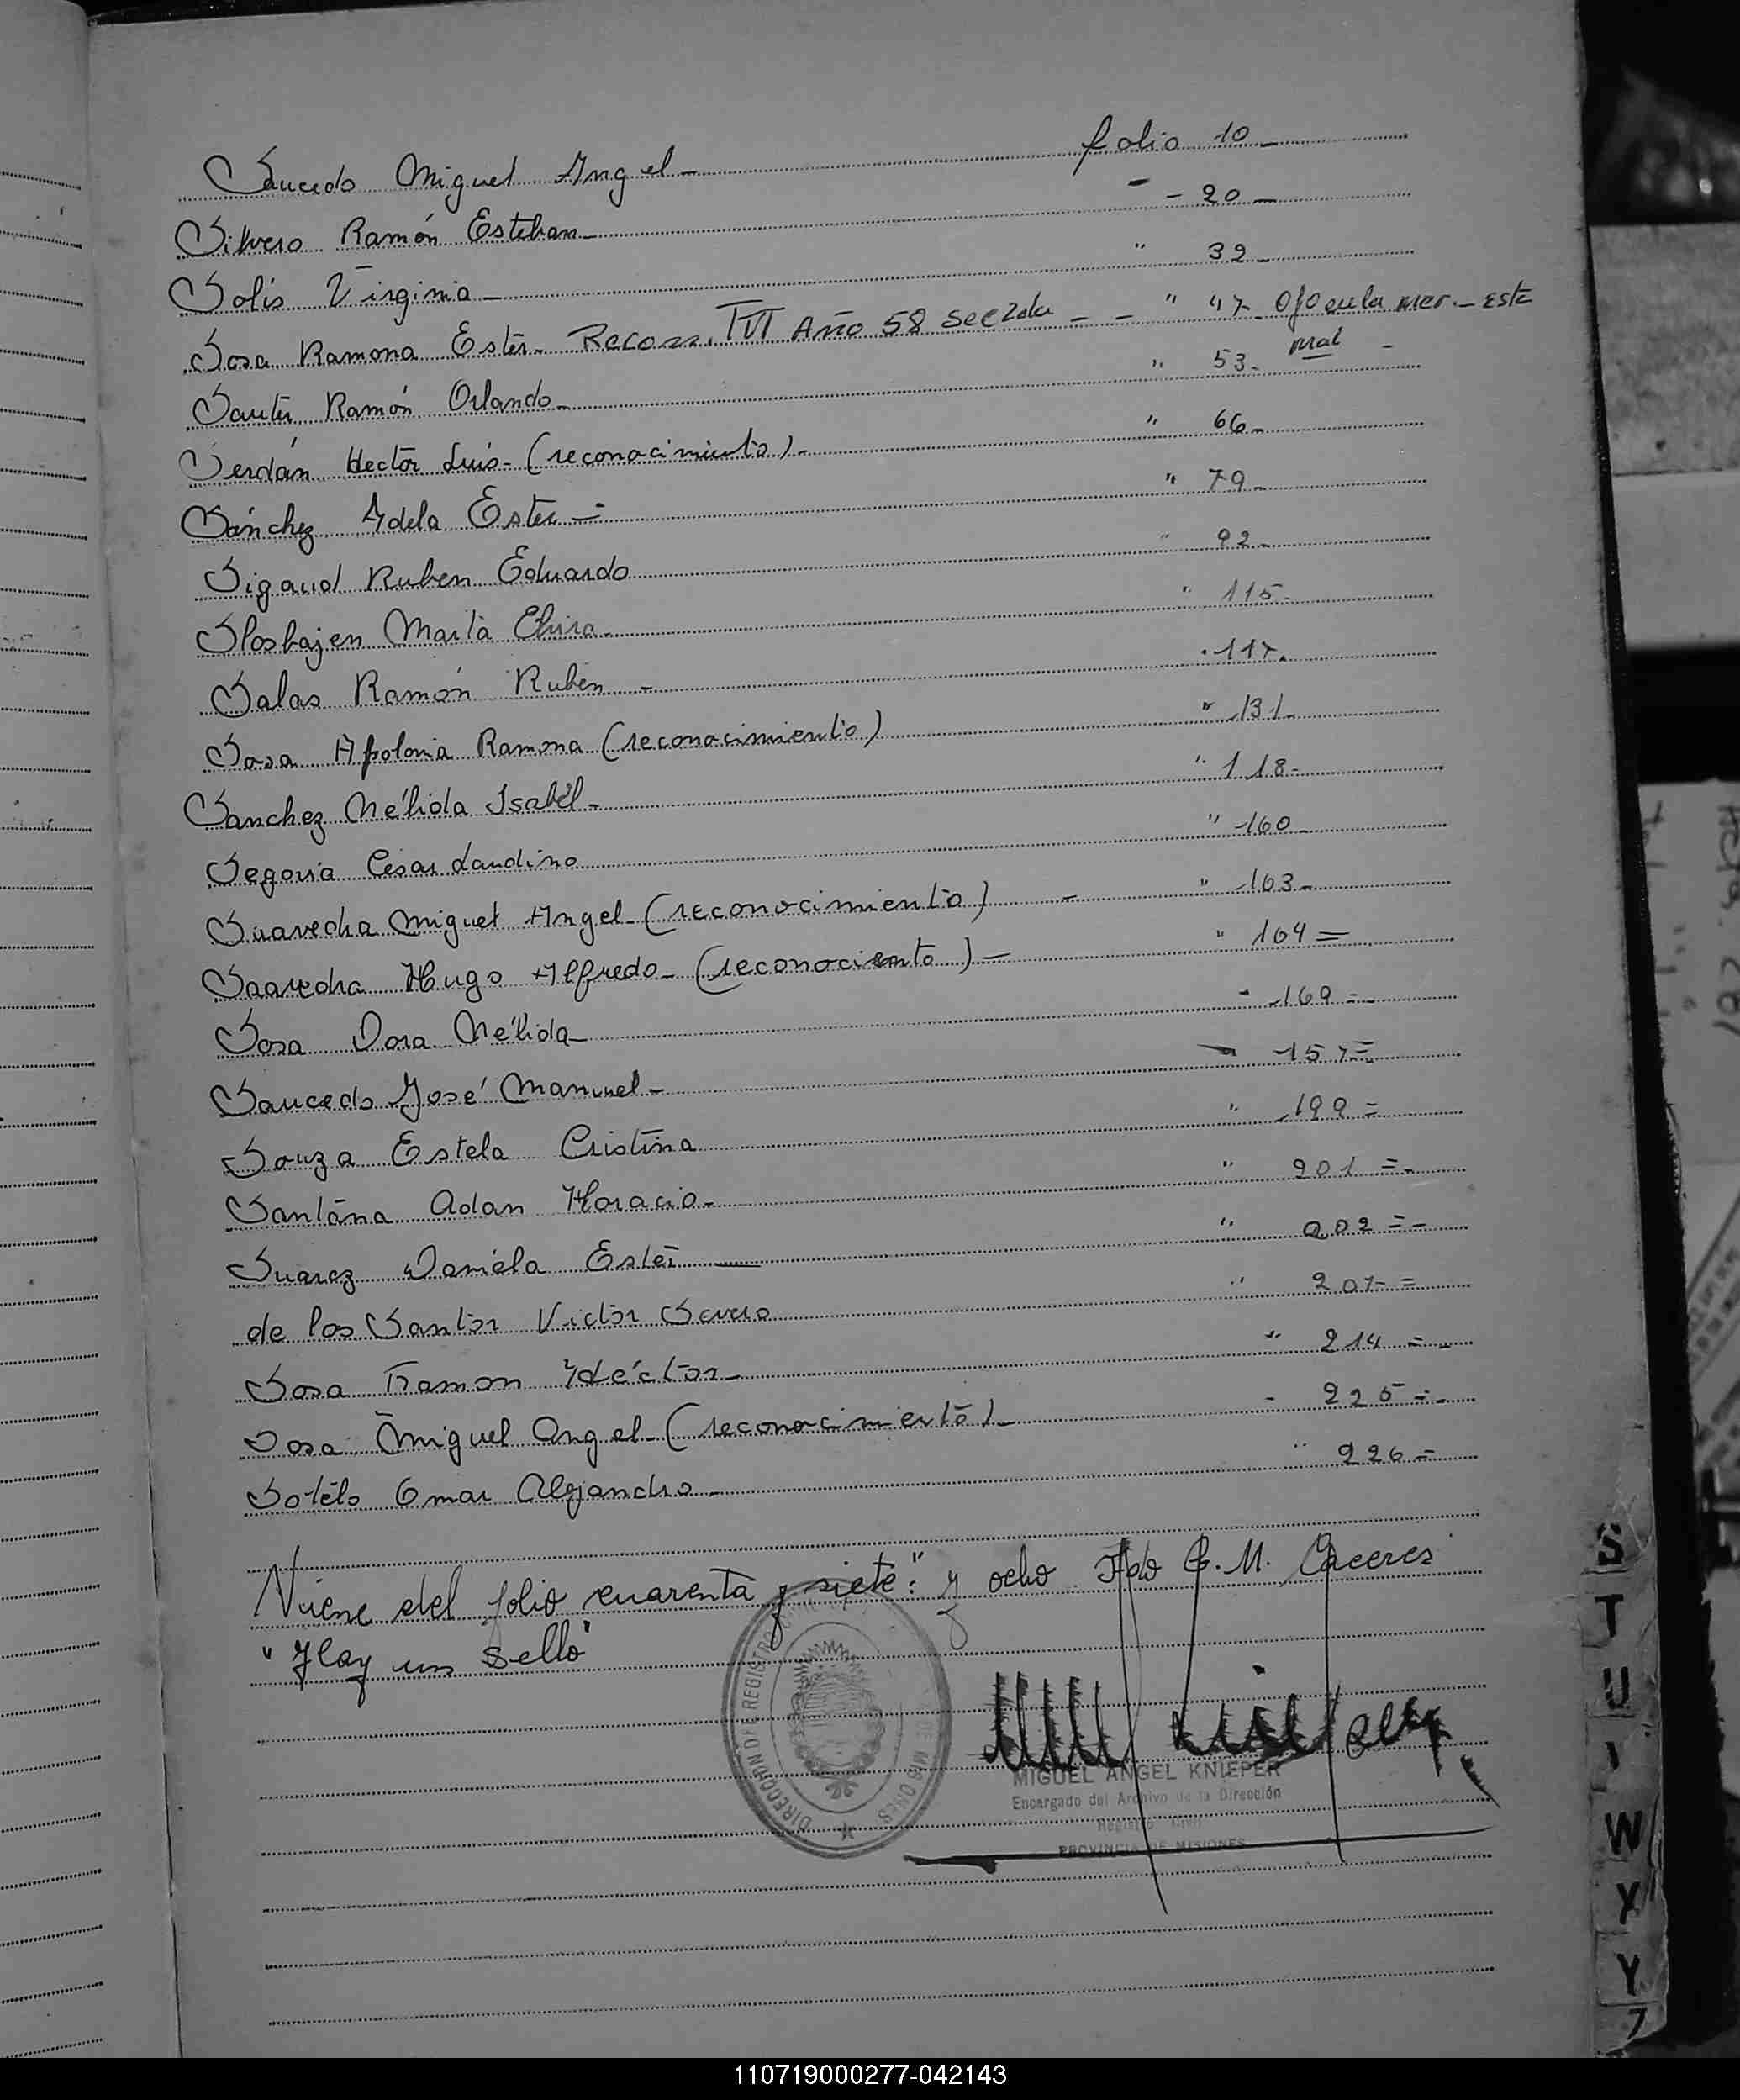 Saucedo Miguel Angel - folio 10 -
Silvero Ramón Esteban - - 20 -
Solis Virginia - " 32 -
Sosa Ramona Ester - Recon. T VI Año 58 Secc 2da - - " 47 - Ojo en la mer. - está mal -
Sauter Ramón Orlando - " 53 -
Serdán Hector Luis - (reconocimiento) - " 66 -
Sánchez Adela Ester - " 79 -
Sigaud Ruben Eduardo " 92 -
Slosbajen Marta Elvira - " 115 -
Salas Ramón Ruben - " 117 -
Sosa Apolonia Ramona (reconocimiento) " 131 -
Sanchez Nélida Isabel - " 118 -
Segovia Cesar Laudino " 160 -
Saavedra Miguel Angel - (reconocimiento) - " 163 -
Saavedra Hugo Alfredo - (reconociento) - " 164 =
Sosa Dora Nélida - " 169 =
Saucedo José Manuel - " 157 =
Souza Estela Cristina " 199 =
Santana Adan Horacio - " 201 = -
Suarez Daniela Ester " 202 = -
de los Santos Victor Severo " 207 =
Sosa Ramon Héctor - " 214 = -
Sosa Miguel Angel - (reconocimiento) - - 225 = -
Sotélo Omar Alejandro - " 226 =
Viene del folio cuarenta y siete: " y ocho Fdo G. M. Caceres
"Hay un Sello"
DIRECCION DE REGISTRO DE MISIONES
MIGUEL ANGEL KNIEPER
Encargado del Archivo de la Dirección
Registro Civil
PROVINCIA DE MISIONES
S
T
U
V
W
X
Y
Z
110719000277-042143